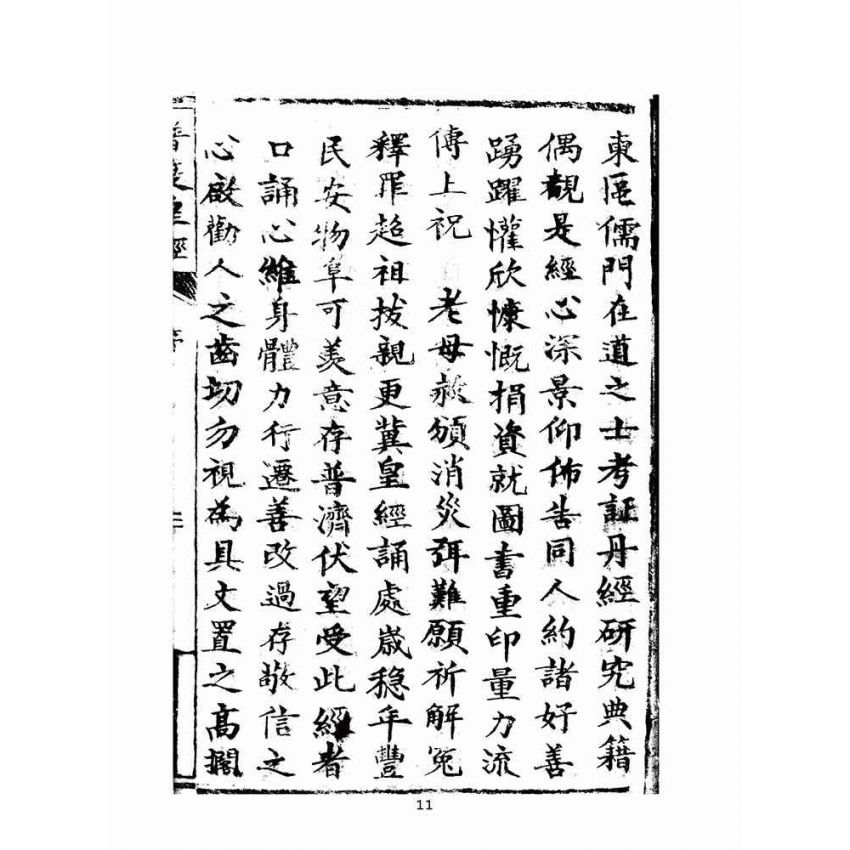 東區儒門在道之士考証丹經研究典籍
偶覩是經心深景仰佈告同人約諸好善
踴躍懽欣慷慨捐資就圖書重印量力流
傳上祝 老母赦頒消災弭難願祈解冤
釋罪超祖拔親更冀皇經誦處歲稳年豐
民安物阜可羡意存普濟伏望受此經者
口誦心維身體力行遷善改過存敬信之
心啟勸人之齒切勿視為具文置之高擱
皇經
序
11